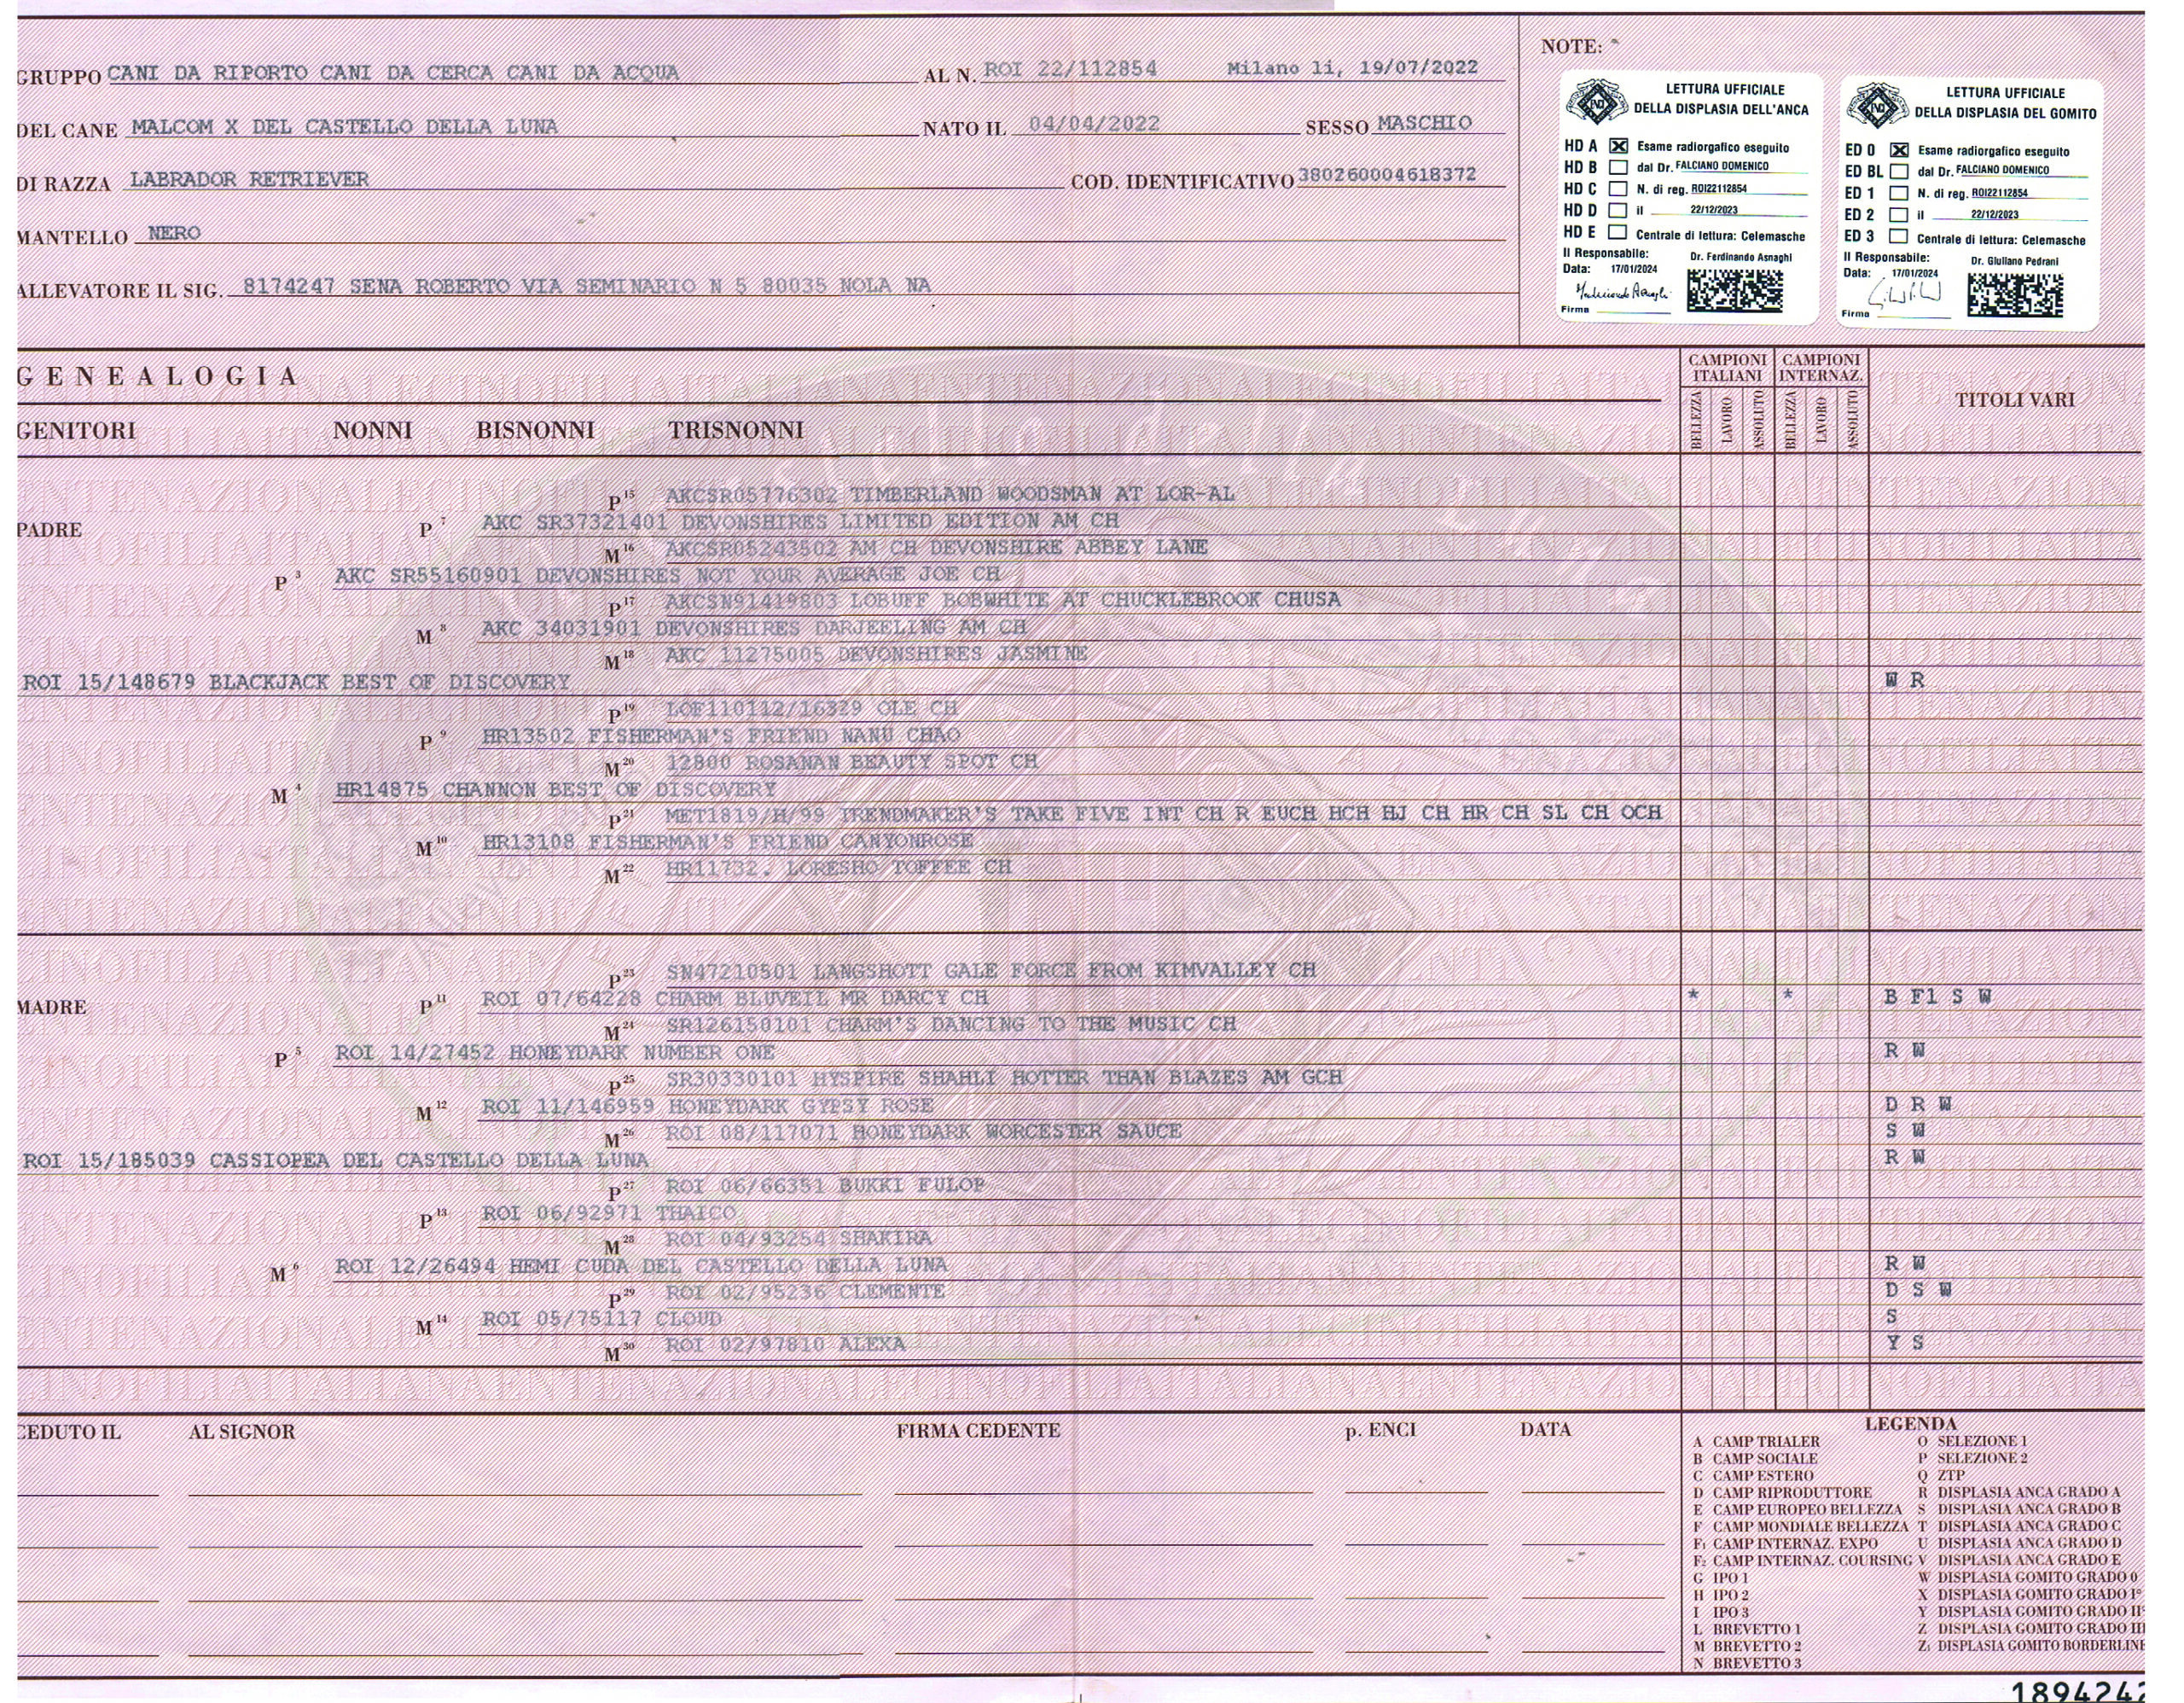 NOTE:
GRUPPO CANI DA RIPORTO CANI DA CERCA CANI DA ACQUA AL N. ROI 22/112854 Milano li, 19/07/2022
DEL CANE MALCOM X DEL CASTELLO DELLA LUNA NATO IL 04/04/2022 SESSO MASCHIO
DI RAZZA LABRADOR RETRIEVER COD. IDENTIFICATIVO 380260004618372
MANTELLO NERO
ALLEVATORE IL SIG. 8174247 SENA ROBERTO VIA SEMINARIO N 5 80035 NOLA NA
LETTURA UFFICIALE
DELLA DISPLASIA DELL'ANCA
HD A Esame radiorgafico eseguito
HD B dal Dr. FALCIANO DOMENICO
HD C N. di reg. ROI22112854
HD D il 22/12/2023
HD E Centrale di lettura: Celemasche
Il Responsabile: Dr. Ferdinando Asnaghi
Data: 17/01/2024
Firma
LETTURA UFFICIALE
DELLA DISPLASIA DEL GOMITO
ED 0 Esame radiorgafico eseguito
ED BL dal Dr. FALCIANO DOMENICO
ED 1 N. di reg. ROI22112854
ED 2 il 22/12/2023
ED 3 Centrale di lettura: Celemasche
Il Responsabile: Dr. Giuliano Pedrani
Data: 17/01/2024
Firma
GENEALOGIA
CAMPIONI ITALIANI CAMPIONI INTERNAZ.
BELLEZZA LAVORO ASSOLUTO BELLEZZA LAVORO ASSOLUTO TITOLI VARI
GENITORI NONNI BISNONNI TRISNONNI
P 15 AKCSR05776302 TIMBERLAND WOODSMAN AT LOR-AL
PADRE P 7 AKC SR37321401 DEVONSHIRES LIMITED EDITION AM CH
M 16 AKCSR05243502 AM CH DEVONSHIRE ABBEY LANE
P 3 AKC SR55160901 DEVONSHIRES NOT YOUR AVERAGE JOE CH
P 17 AKCSN91419803 LOBUFF BOBWHITE AT CHUCKLEBROOK CHUSA
M 8 AKC 34031901 DEVONSHIRES DARJEELING AM CH
M 18 AKC 11275005 DEVONSHIRES JASMINE
ROI 15/148679 BLACKJACK BEST OF DISCOVERY W R
P 19 LOF110112/16329 OLE CH
P 9 HR13502 FISHERMAN'S FRIEND NANU CHAO
M 20 12800 ROSANAN BEAUTY SPOT CH
M 4 HR14875 CHANNON BEST OF DISCOVERY
P 21 MET1819/H/99 TRENDMAKER'S TAKE FIVE INT CH R EUCH HCH HJ CH HR CH SL CH OCH
M 10 HR13108 FISHERMAN'S FRIEND CANYONROSE
M 22 HR11732. LORESHO TOFFEE CH
P 23 SN47210501 LANGSHOTT GALE FORCE FROM KIMVALLEY CH
MADRE P 11 ROI 07/64228 CHARM BLUVEIL MR DARCY CH * * B F1 S W
M 24 SR126150101 CHARM'S DANCING TO THE MUSIC CH
P 5 ROI 14/27452 HONEYDARK NUMBER ONE R W
P 25 SR30330101 HYSPIRE SHAHLI HOTTER THAN BLAZES AM GCH
M 12 ROI 11/146959 HONEYDARK GYPSY ROSE D R W
M 26 ROI 08/117071 HONEYDARK WORCESTER SAUCE S W
ROI 15/185039 CASSIOPEA DEL CASTELLO DELLA LUNA R W
P 27 ROI 06/66351 BUKKI FULOP
P 13 ROI 06/92971 THAICO
M 28 ROI 04/93254 SHAKIRA
M 6 ROI 12/26494 HEMI CUDA DEL CASTELLO DELLA LUNA R W
P 29 ROI 02/95236 CLEMENTE D S W
M 14 ROI 05/75117 CLOUD S
M 30 ROI 02/97810 ALEXA Y S
CEDUTO IL AL SIGNOR FIRMA CEDENTE p. ENCI DATA
LEGENDA
A CAMP TRIALER O SELEZIONE 1
B CAMP SOCIALE P SELEZIONE 2
C CAMP ESTERO Q ZTP
D CAMP RIPRODUTTORE R DISPLASIA ANCA GRADO A
E CAMP EUROPEO BELLEZZA S DISPLASIA ANCA GRADO B
F CAMP MONDIALE BELLEZZA T DISPLASIA ANCA GRADO C
F1 CAMP INTERNAZ. EXPO U DISPLASIA ANCA GRADO D
F2 CAMP INTERNAZ. COURSING V DISPLASIA ANCA GRADO E
G IPO 1 W DISPLASIA GOMITO GRADO 0
H IPO 2 X DISPLASIA GOMITO GRADO I°
I IPO 3 Y DISPLASIA GOMITO GRADO II°
L BREVETTO 1 Z DISPLASIA GOMITO GRADO III
M BREVETTO 2 Z1 DISPLASIA GOMITO BORDERLINE
N BREVETTO 3
1894242